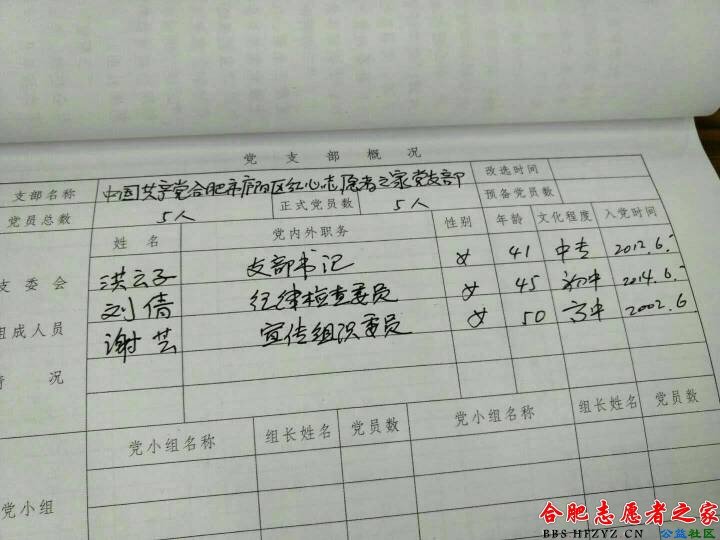 党 支 部 概 况
支部名称 中国共产党合肥市庐阳区红心志愿者之家党支部 改选时间
党员总数 5人 正式党员数 5人 预备党员数
支委会 姓 名 党内外职务 性别 年龄 文化程度 入党时间
洪云子 支部书记 女 41 中专 2012.6.
刘倩 纪律检查委员 女 45 初中 2014.6.
组成人员 谢芸 宣传组织委员 女 50 高中 2002.6.
情 况
党小组名称 组长姓名 党员数 党小组名称 组长姓名 党员数
党小组
合肥志愿者之家
BBS.HFZYZ.CN 公益社区